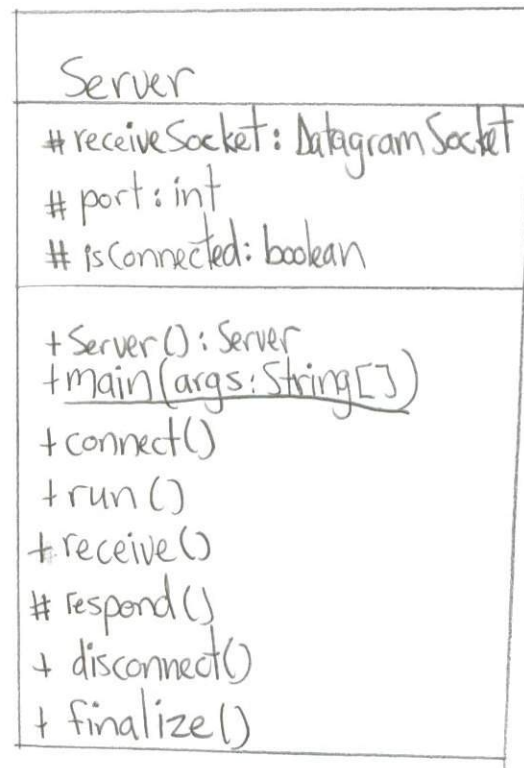 Server
# receiveSocket: DatagramSocket
# port: int
# isConnected: boolean
+ Server(): Server
+ main(args: String[])
+ connect()
+ run()
+ receive()
# respond()
+ disconnect()
+ finalize()